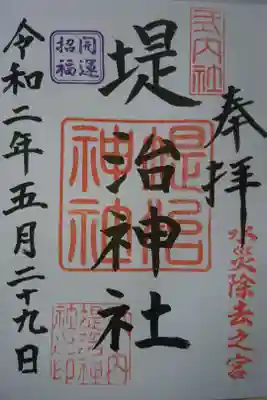 式内社
奉拝
水災除去之宮
堤治神社
堤治神社
開運
招福
令和二年五月二十九日